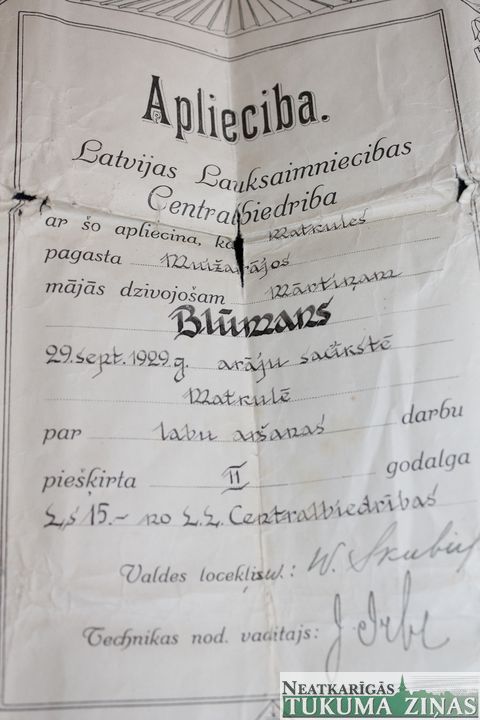 Apliecība.
Latvijas Lauksaimniecības
Centralbiedrība
ar šo apliecina, ka Matkules
pagasta Muižarājos
mājās dzivojošam Mārtiņam
Blūmans
29. sept. 1929. g. arāju sacīkstē
Matkulē
par labu aršanas darbu
piešķirta II godalga
Ls 15.- no L.L. Centralbiedrības
Valdes loceklis: W.
Technikas nod. vadītajs: J.
NEATKARĪGĀS
TUKUMA ZIŅAS